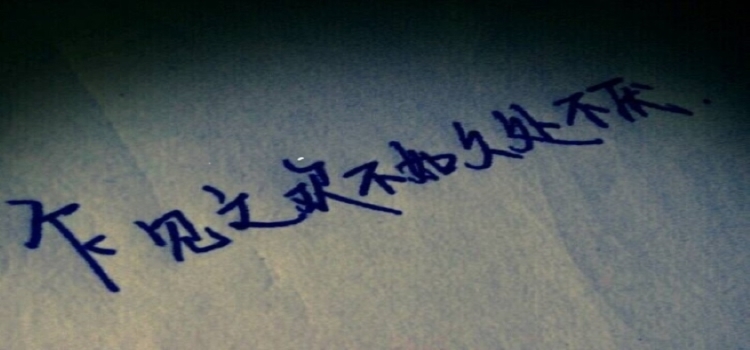 乍见之欢不如久处不厌.